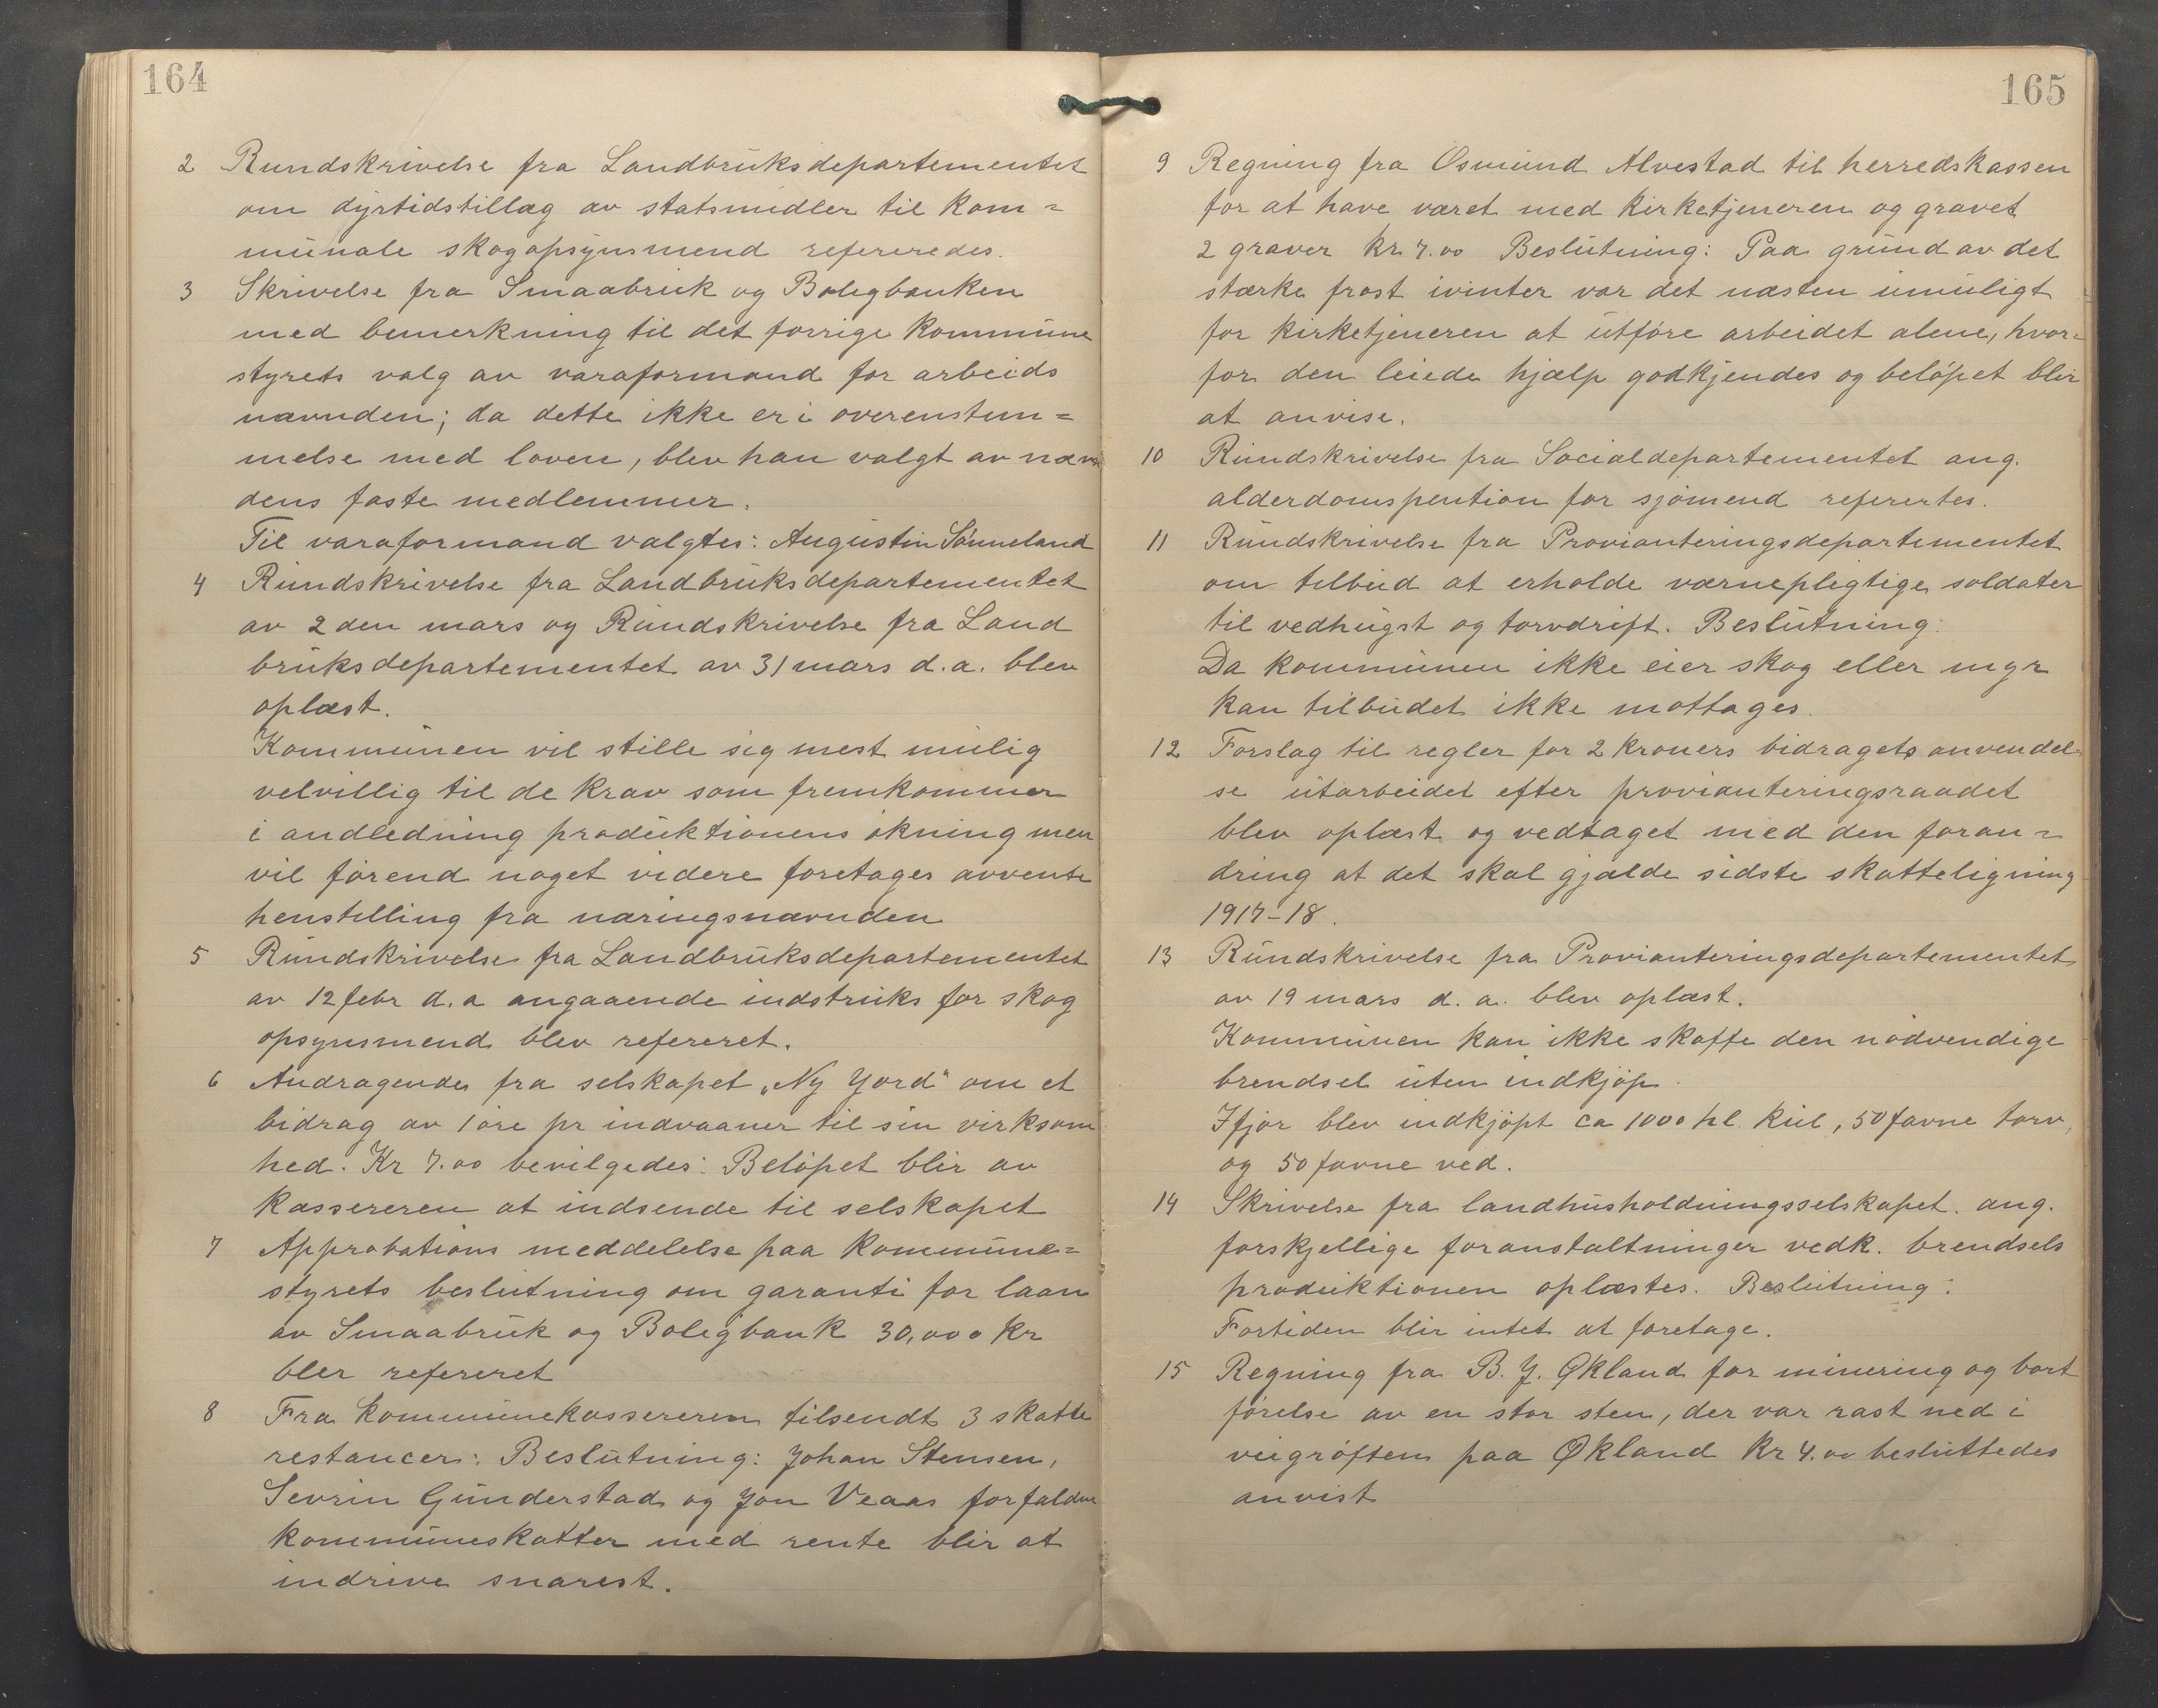 164
2 Rundskrivelse fra Landbruksdepartementet
om dyrtidstillæg av statsmidler til kom=
munale skogopsynsmend refereredes.
3 Skrivelse fra Smaabruk og Boligbanken
med bemerkning til det forrige kommune
styrets valg av varaformand for arbeids
nævnden; da dette ikke er i overenstem=
melse med loven, blev han valgt av nævn
dens faste medlemmer.
Til varaformand valgtes: Augustin Sønneland
4 Rundskrivelse fra Landbruksdepartementet
av 2 den mars og Rundskrivelse fra Land
bruksdepartementet av 31 mars d.a. blev
oplæst.
Kommunen vil stille sig mest mulig
velvillig til de krav som fremkommer
i andledning produktionens økning men
vil førend noget videre foretages avvente
henstilling fra næringsnævnden
5 Rundskrivelse fra Landbruksdepartementet
av 12 febr d.a angaaende indstruks for skog
opsynsmend blev refereret.
6 Andragende fra selskapet „Ny Jord" om et
bidrag av 1 øre pr indvaaner til sin virksom
hed. Kr 7.00 bevilgedes: Beløpet blir av
kassereren at indsende til selskapet
7 Approbations meddelelse paa kommune=
styrets beslutning om garanti for laan
av Smaabruk og Boligbank 30,000 kr
blev refereret
8 Fra kommunekassereren tilsendt 3 skatte
restancer: Beslutning: Johan Stensen,
Sevrin Gunderstad og Jon Veaas forfaldne
kommuneskatter med rente blir at
indrive snarest.
165
9 Regning fra Osmund Alvestad til herredskassen
for at have været med kirketjeneren og gravet
2 graver kr. 7.00 Beslutning: Paa grund av det
stærke frost ivinter var det næsten umuligt
for kirketjeneren at utføre arbeidet alene, hvor=
for den leiede hjælp godkjendes og beløpet blir
at anvise.
10 Rundskrivelse fra Socialdepartementet ang.
alderdomspention for sjømend referertes.
11 Rundskrivelse fra Provianteringsdepartementet
om tilbud at erholde værnepligtige soldater
til vedhugst og torvdrift. Beslutning:
Da kommunen ikke eier skog eller myr
kan tilbudet ikke mottages.
12 Forslag til regler for 2 kroners bidragets anvendel
se utarbeidet efter provianteringsraadet
blev oplæst og vedtaget med den foran=
dring at det skal gjælde sidste skatteligning
1917-18.
13 Rundskrivelse fra Provianteringsdepartementet
av 19 mars d.a. blev oplæst.
Kommunen kan ikke skaffe den nødvendige
brendsel uten indkjøp.
Ifjor blev indkjøpt ca 1000 hl. kul, 50 favne torv,
og 50 favne ved.
14 Skrivelse fra landhusholdningsselskapet. ang.
forskjellige foranstaltninger vedk. brendsels
produktionen oplæstes. Beslutning:
Fortiden blir intet at foretage.
15 Regning fra B. J. Økland for minering og bort
førelse av en stor sten, der var rast ned i
veigrøften paa Økland Kr 4.00 besluttedes
anvist